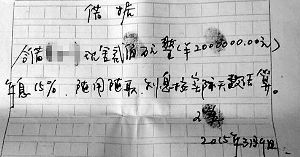 借据
今借 现金贰佰万元整(¥2000000.00元)
年息15%,随用随取,利息按实际天数结算。
2015年3月9日